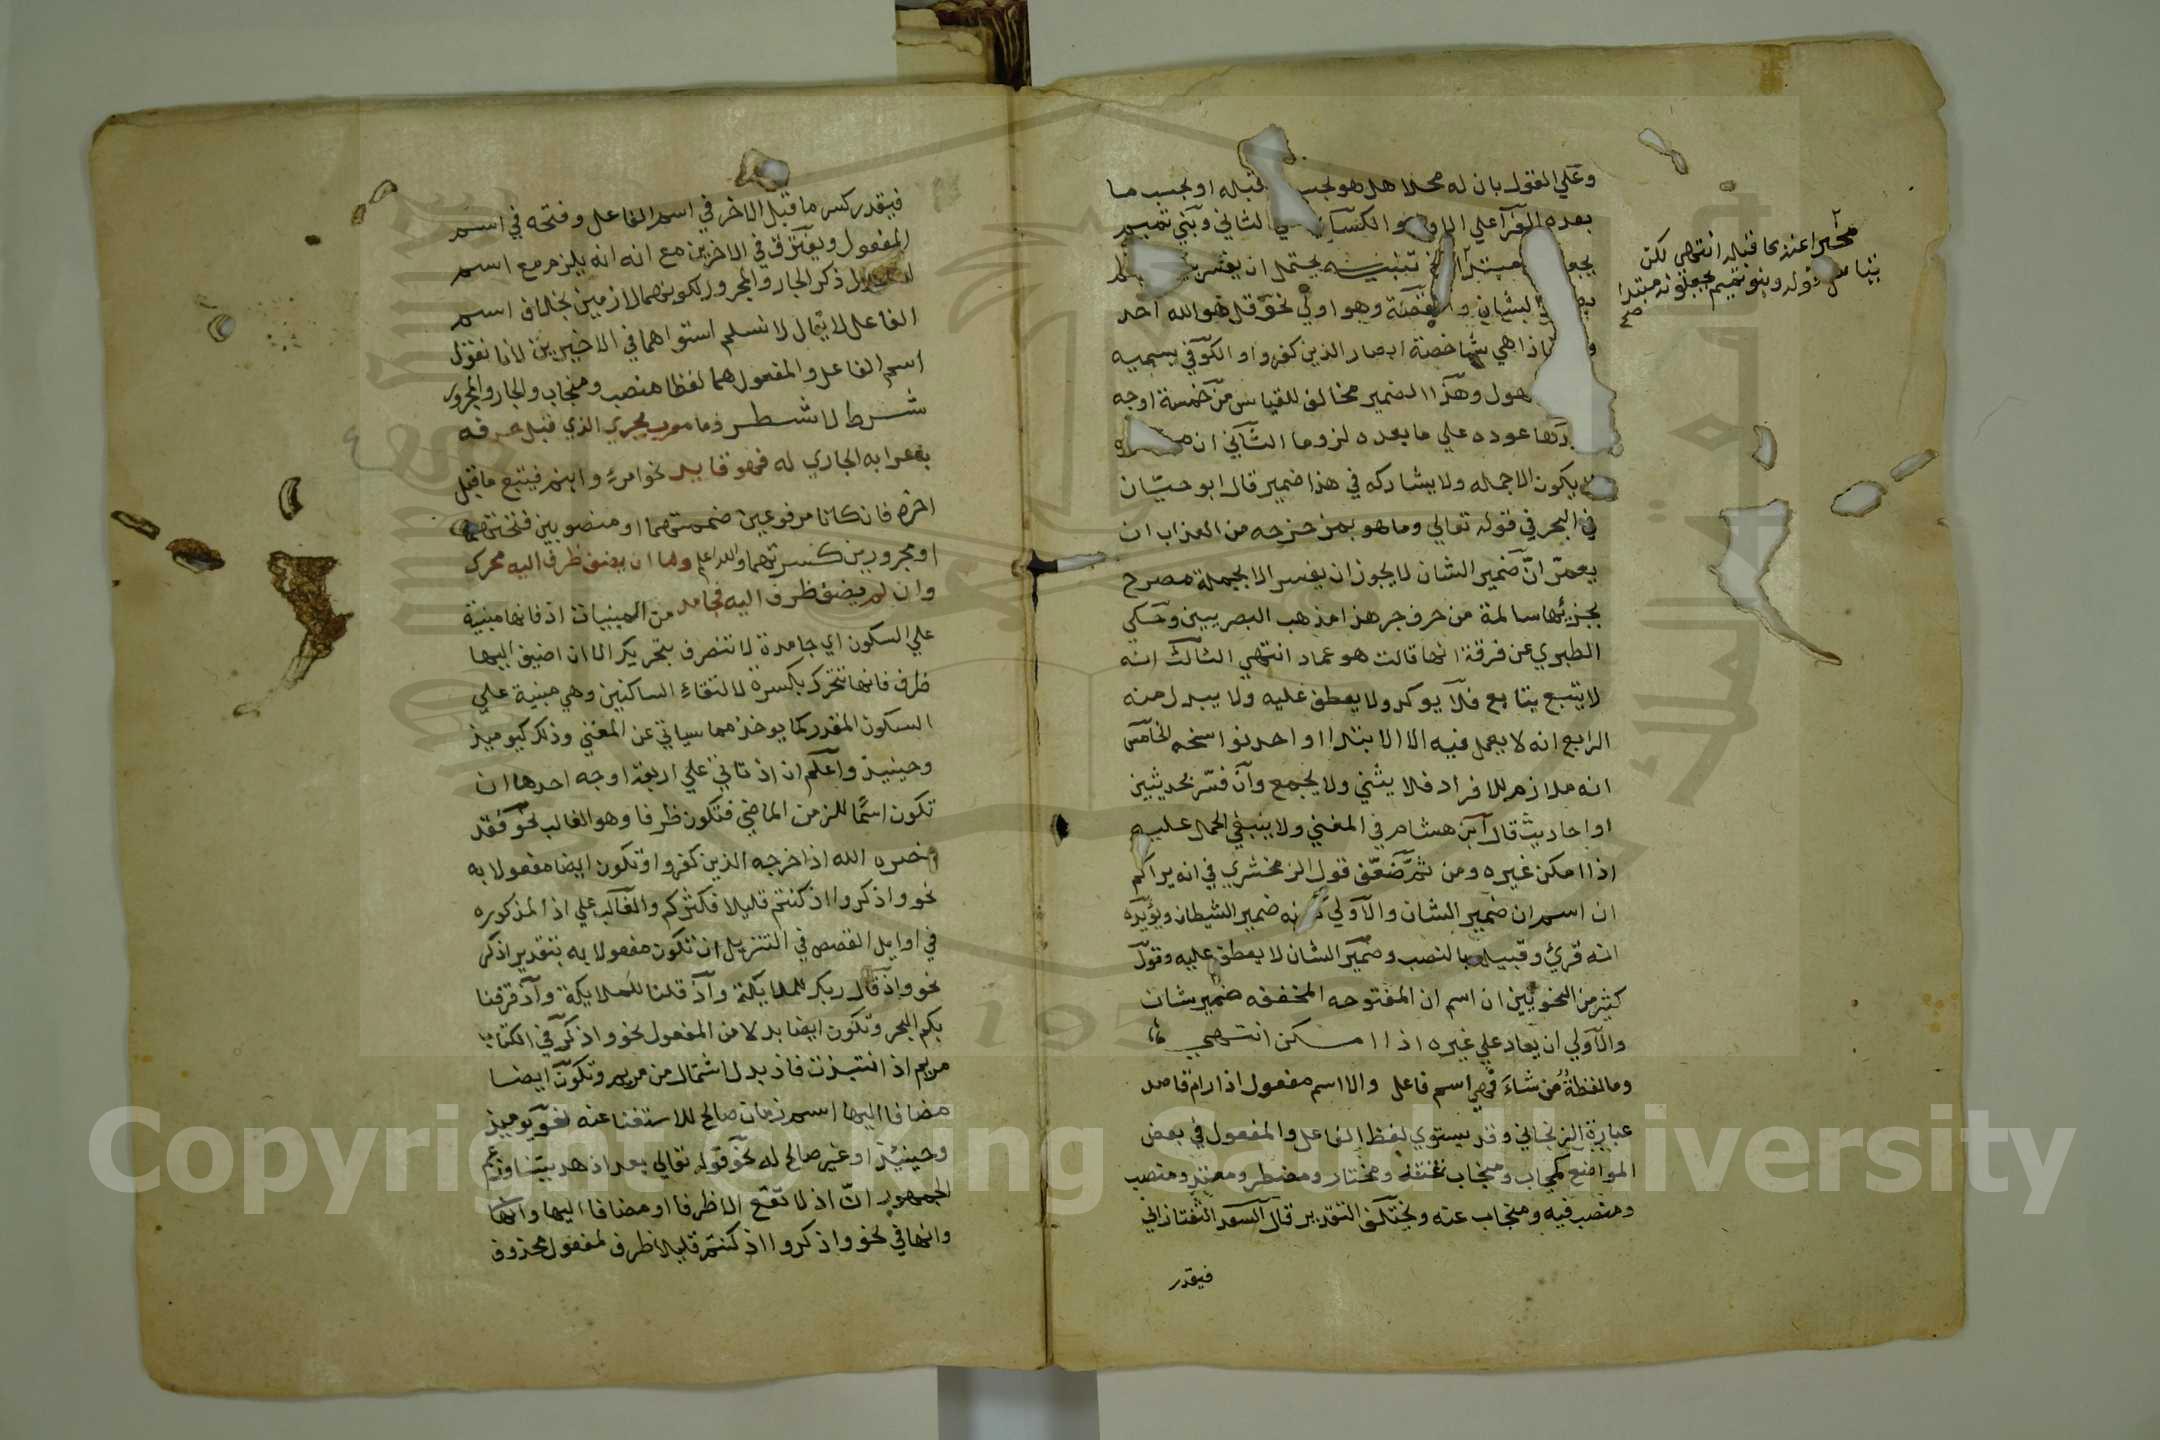 وعلي القول بان له محلا هل هو بحسب قبله او بحسب ما
بعده الفرا علي الاول والكسائي الثاني وبني تميم
مبتدا تنبيه يحتمل ان يفسر
الشان والقصة وهو اولي نحو قل هو الله احد
فاذا هي شاخصة ابصار الذين كفروا والكوفي يسميه
وهذا الضمير مخالف للقياس من خمسة اوجه
عوده علي ما بعده لزوما الثاني ان
لا يكون الا جمله ولا يشاركه في هذا ضمير قال ابو حيان
في البحر في قوله تعالي وما هو بمزحزحه من العذاب ان
يعمر ان ضمير الشان لا يجوز ان يفسر الا بجملة مصرح
بجزئيها سالمة من حرف جر هذا مذهب البصريين وحكي
الطبري عن فرقة انها قالت هو عماد انتهي الثالث انه
لا يتبع بتابع فلا يوكد ولا يعطف عليه ولا يبدل منه
الرابع انه لا يعمل فيه الا الابتدا او احد نواسخه الخامس
انه ملازم للافراد فلا يثني ولا يجمع وان فسر بحديثين
او احاديث قال ابن هشام في المغني ولا ينبغي الحمل عليه
اذا امكن غيره ومن ثم ضعف قول الزمخشري في انه يراكم
ان اسم ان ضمير الشان والاولي كونه ضمير الشيطان ويؤيده
انه قري وقبيله بالنصب وضمير الشان لا يعطف عليه وقول
كثير من النحويين ان اسم ان المفتوحه المخففه ضمير شان
والاولي ان يعاد علي غيره اذا امكن انتهي
وما لفظة من شاء فهي اسم فاعل والا اسم مفعول اذا رام قاصد
عبارة الزنجاني وقد يستوي لفظ الفاعل والمفعول في بعض
المواضع كمحاب ومختار ومضطر ومعتد ومنصب
ومنصب فيه ومنجاب عنه ويختلف التقدير قال السعد التفتازاني
فيقدر
انتهي لكن
وبنو تميم يجعلونه مبتدا
صح
فيقدر كسر ما قبل الاخر في اسم الفاعل وفتحه في اسم
المفعول ويفترق في الاخرين مع انه انه يلزم مع اسم
ذكر الجار والمجرور لكونهما لازمين بخلاف اسم
الفاعل لا يقال لا نسلم استواهما في الاخيرين لانا نقول
اسم الفاعل والمفعول هما لفظا منصب ومنجاب والجار والمجرور
شرط لا شطر وما معرب يجري الذي قبل حرفه
بإعرابه الجاري له فهو قايد نحو امرئ وابنم فيتبع ما قبل
اخره فان كانا مرفوعين ضممتهما او منصوبين فتحتهما
او مجرورين كسرتهما والله اعلم وما ان يضف ظرف اليه محرك
وان لم يضف ظرف اليه فجامد من المبنيات اذ فانها مبنية
علي السكون اي جامدة لا تتصرف بتحريك الا ان اضيف اليها
ظرف فانها تتحرك بكسرة لالتقاء الساكنين وهي مبنية علي
السكون المقدر كما يوخذ مما سياتي عن المغني وذلك كيوميذ
وحينيذ واعلم ان اذ تاتي علي اربعة اوجه احدها ان
تكون اسما للزمن الماضي فتكون ظرفا وهو الغالب نحو فقد
نصره الله اذ اخرجه الذين كفروا وتكون ايضا مفعولا به
نحو واذكروا اذ كنتم قليلا فكثركم والغالب علي اذ المذكوره
في اوايل القصص في التنزيل ان تكون مفعولا به بتقدير اذكر
نحو واذ قال ربك للملايكة واذ قلنا للملايكة واذ فرقنا
بكم البحر وتكون ايضا بدلا من المفعول نحو واذكر في الكتاب
مريم اذ انتبذت فاذ بدل اشتمال من مريم وتكون ايضا
مضافا اليها اسم زمان صالح للاستغنا عنه نحو يوميذ
وحينيذ او غير صالح له نحو قوله تعالي بعد اذ هديتنا وزعم
الجمهور ان اذ لا تقع الا ظرفا او مضافا اليها وانها
وانها في نحو واذكروا اذ كنتم قليلا ظرف لمفعول محذوف